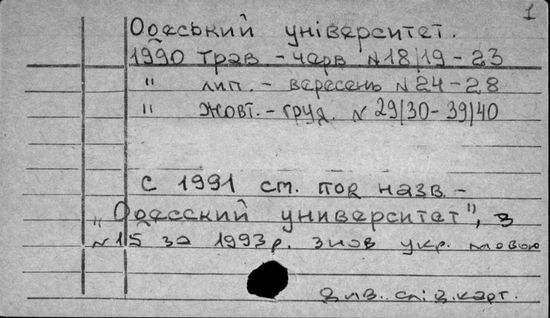 1
Одеський університет.
1990 трав - черв N18/19-23
" лип. - вересень N24-28
" жовт. - груд. N 29/30-39/40
С 1991 ст. под назв -
"Одесский университет", з
N15 за 1993р. знов укр. мовою
див. сл. з. карт.